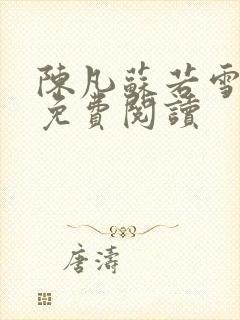 陳凡蘇若雪
免費閱讀
唐濤